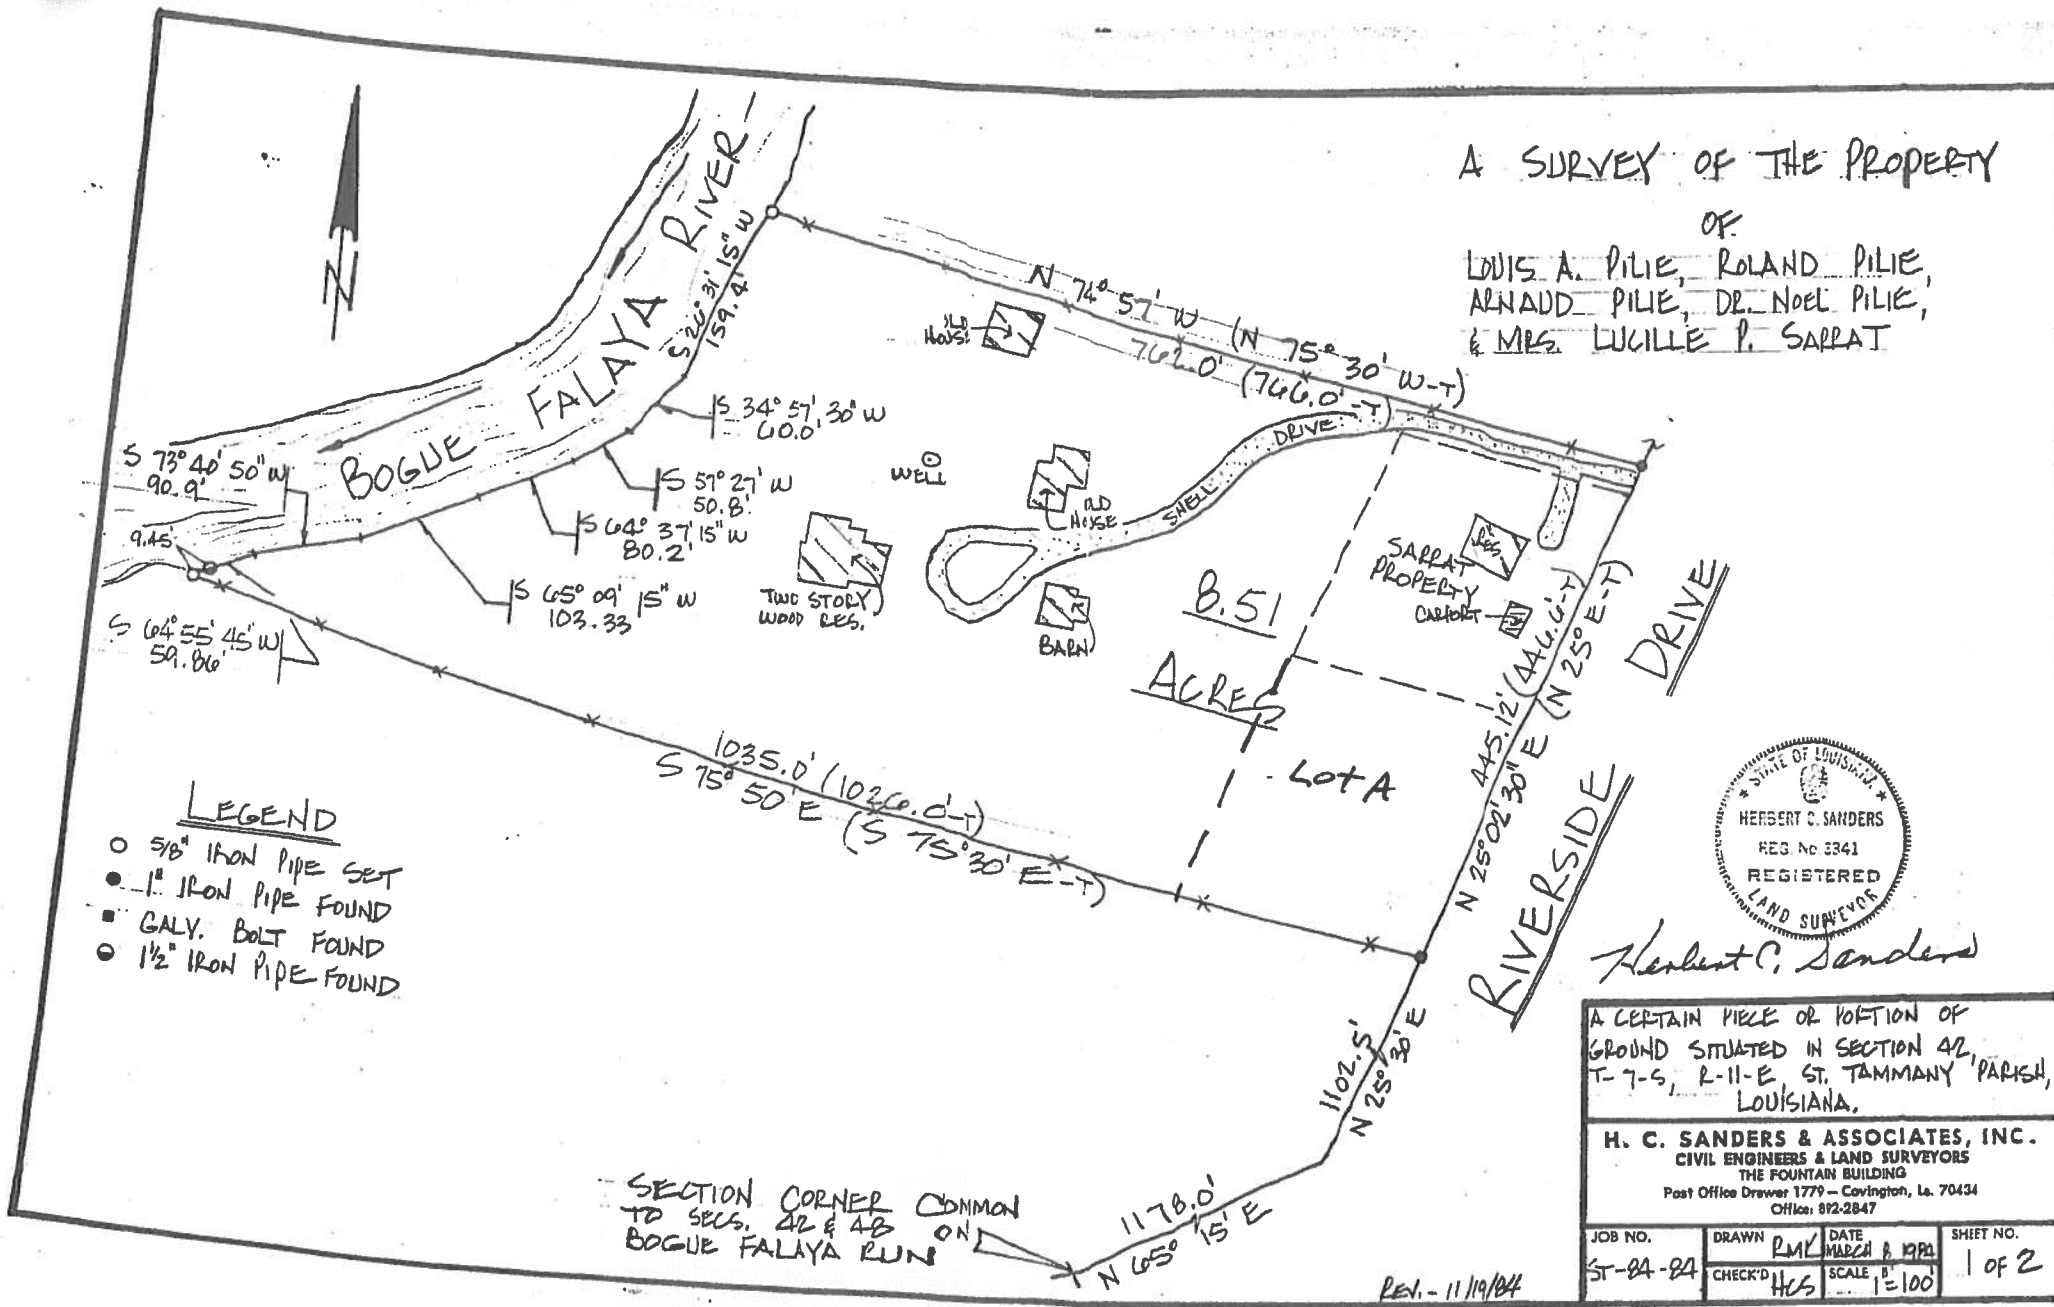 A SURVEY OF THE PROPERTY
OF
LOUIS A. PILIE, ROLAND PILIE,
ARNAUD PILIE, DR. NOEL PILIE,
& MRS. LUCILLE P. SARRAT
N
BOGUE FALAYA RIVER
S 26° 31' 15" W
159.4'
N 74° 57' W (N 75° 30' W-T)
762.0' (766.0'-T)
OLD
HOUSE
S 34° 57' 30" W
60.0'
S 57° 27' W
50.8'
S 64° 37' 15" W
80.2'
S 65° 09' 15" W
103.33
S 73° 40' 50" W
90.9'
9.45'
S 64° 55' 45" W
59.86'
WELL
OLD
HOUSE
SHELL DRIVE
TWO STORY
WOOD RES.
BARN
SARRAT
PROPERTY
RES.
CARPORT
8.51
ACRES
Lot A
445.12' (446.6'-T)
N 25° 02' 30" E (N 25° E-T)
RIVERSIDE DRIVE
1035.0' (1026.0'-T)
S 75° 50' E (S 75° 30' E-T)
LEGEND
5/8" IRON PIPE SET
1" IRON PIPE FOUND
GALV. BOLT FOUND
1½" IRON PIPE FOUND
1102.5'
N 25° 30' E
1178.0'
N 65° 15' E
SECTION CORNER COMMON
TO SECS. 42 & 48 ON
BOGUE FALAYA RUN
STATE OF LOUISIANA
HERBERT C. SANDERS
REG. No 3341
REGISTERED
LAND SURVEYOR
Herbert C. Sanders
A CERTAIN PIECE OR PORTION OF
GROUND SITUATED IN SECTION 42,
T-7-S, R-11-E, ST. TAMMANY PARISH,
LOUISIANA.
H. C. SANDERS & ASSOCIATES, INC.
CIVIL ENGINEERS & LAND SURVEYORS
THE FOUNTAIN BUILDING
Post Office Drawer 1779 – Covington, La. 70434
Office: 892-2847
JOB NO.
ST-84-84
DRAWN RMK
CHECK'D HCS
DATE
MARCH 8, 1984
SCALE 1"=100'
SHEET NO.
1 OF 2
REV. - 11/19/84